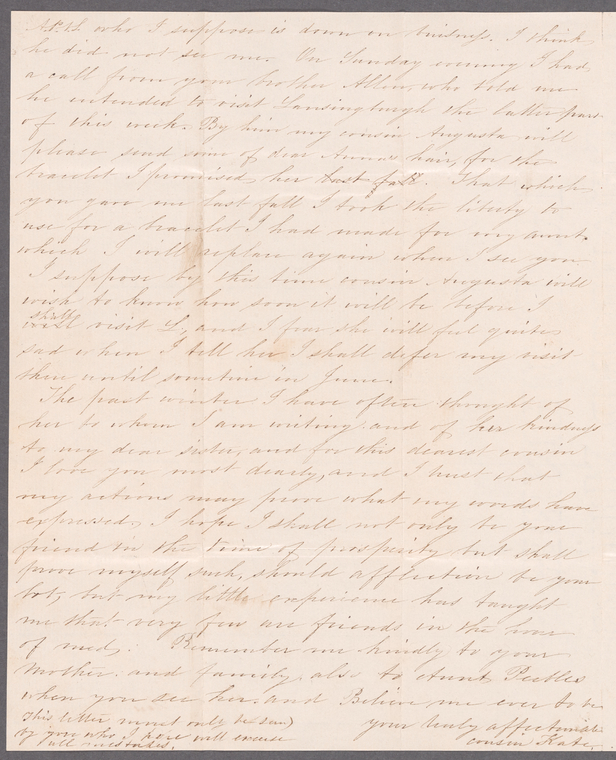 who I suppose is down on business. I think
he did not see me. On Sunday evening I had
a call from your brother Allen, who told me
he intended to visit Lansingburgh the latter part
of this week. By him my cousin Augusta will
please send some of dear Anna's hair, for the
bracelet I promised her last fall. That which
you gave me last fall I took the liberty to
use for a bracelet I had made for my aunt.
which I will replace again when I see you
I suppose by this time cousin Augusta will
wish to know how soon it will be before I
shall
will visit L, and I fear she will feel quite
sad when I tell her I shall defer my visit
then until sometime in June.
The past winter I have often thought of
her to whom I am writing and of her kindness
to my dear sister, and for this dearest cousin
I love you most dearly, and I trust that
my actions may prove what my words have
expressed. I hope I shall not only be your
friend in the time of prosperity but shall
prove myself such, should affliction be your
lot, but my little experience has taught
me that very few are friends in the hour
of need. Remember me kindly to your
Mother. and family also to Aunt Peebles
when you see her. and Believe me ever to be
your truly affectionate
cousin Kate,
This letter must only be seen
by you who I hope will excuse
all mistakes.